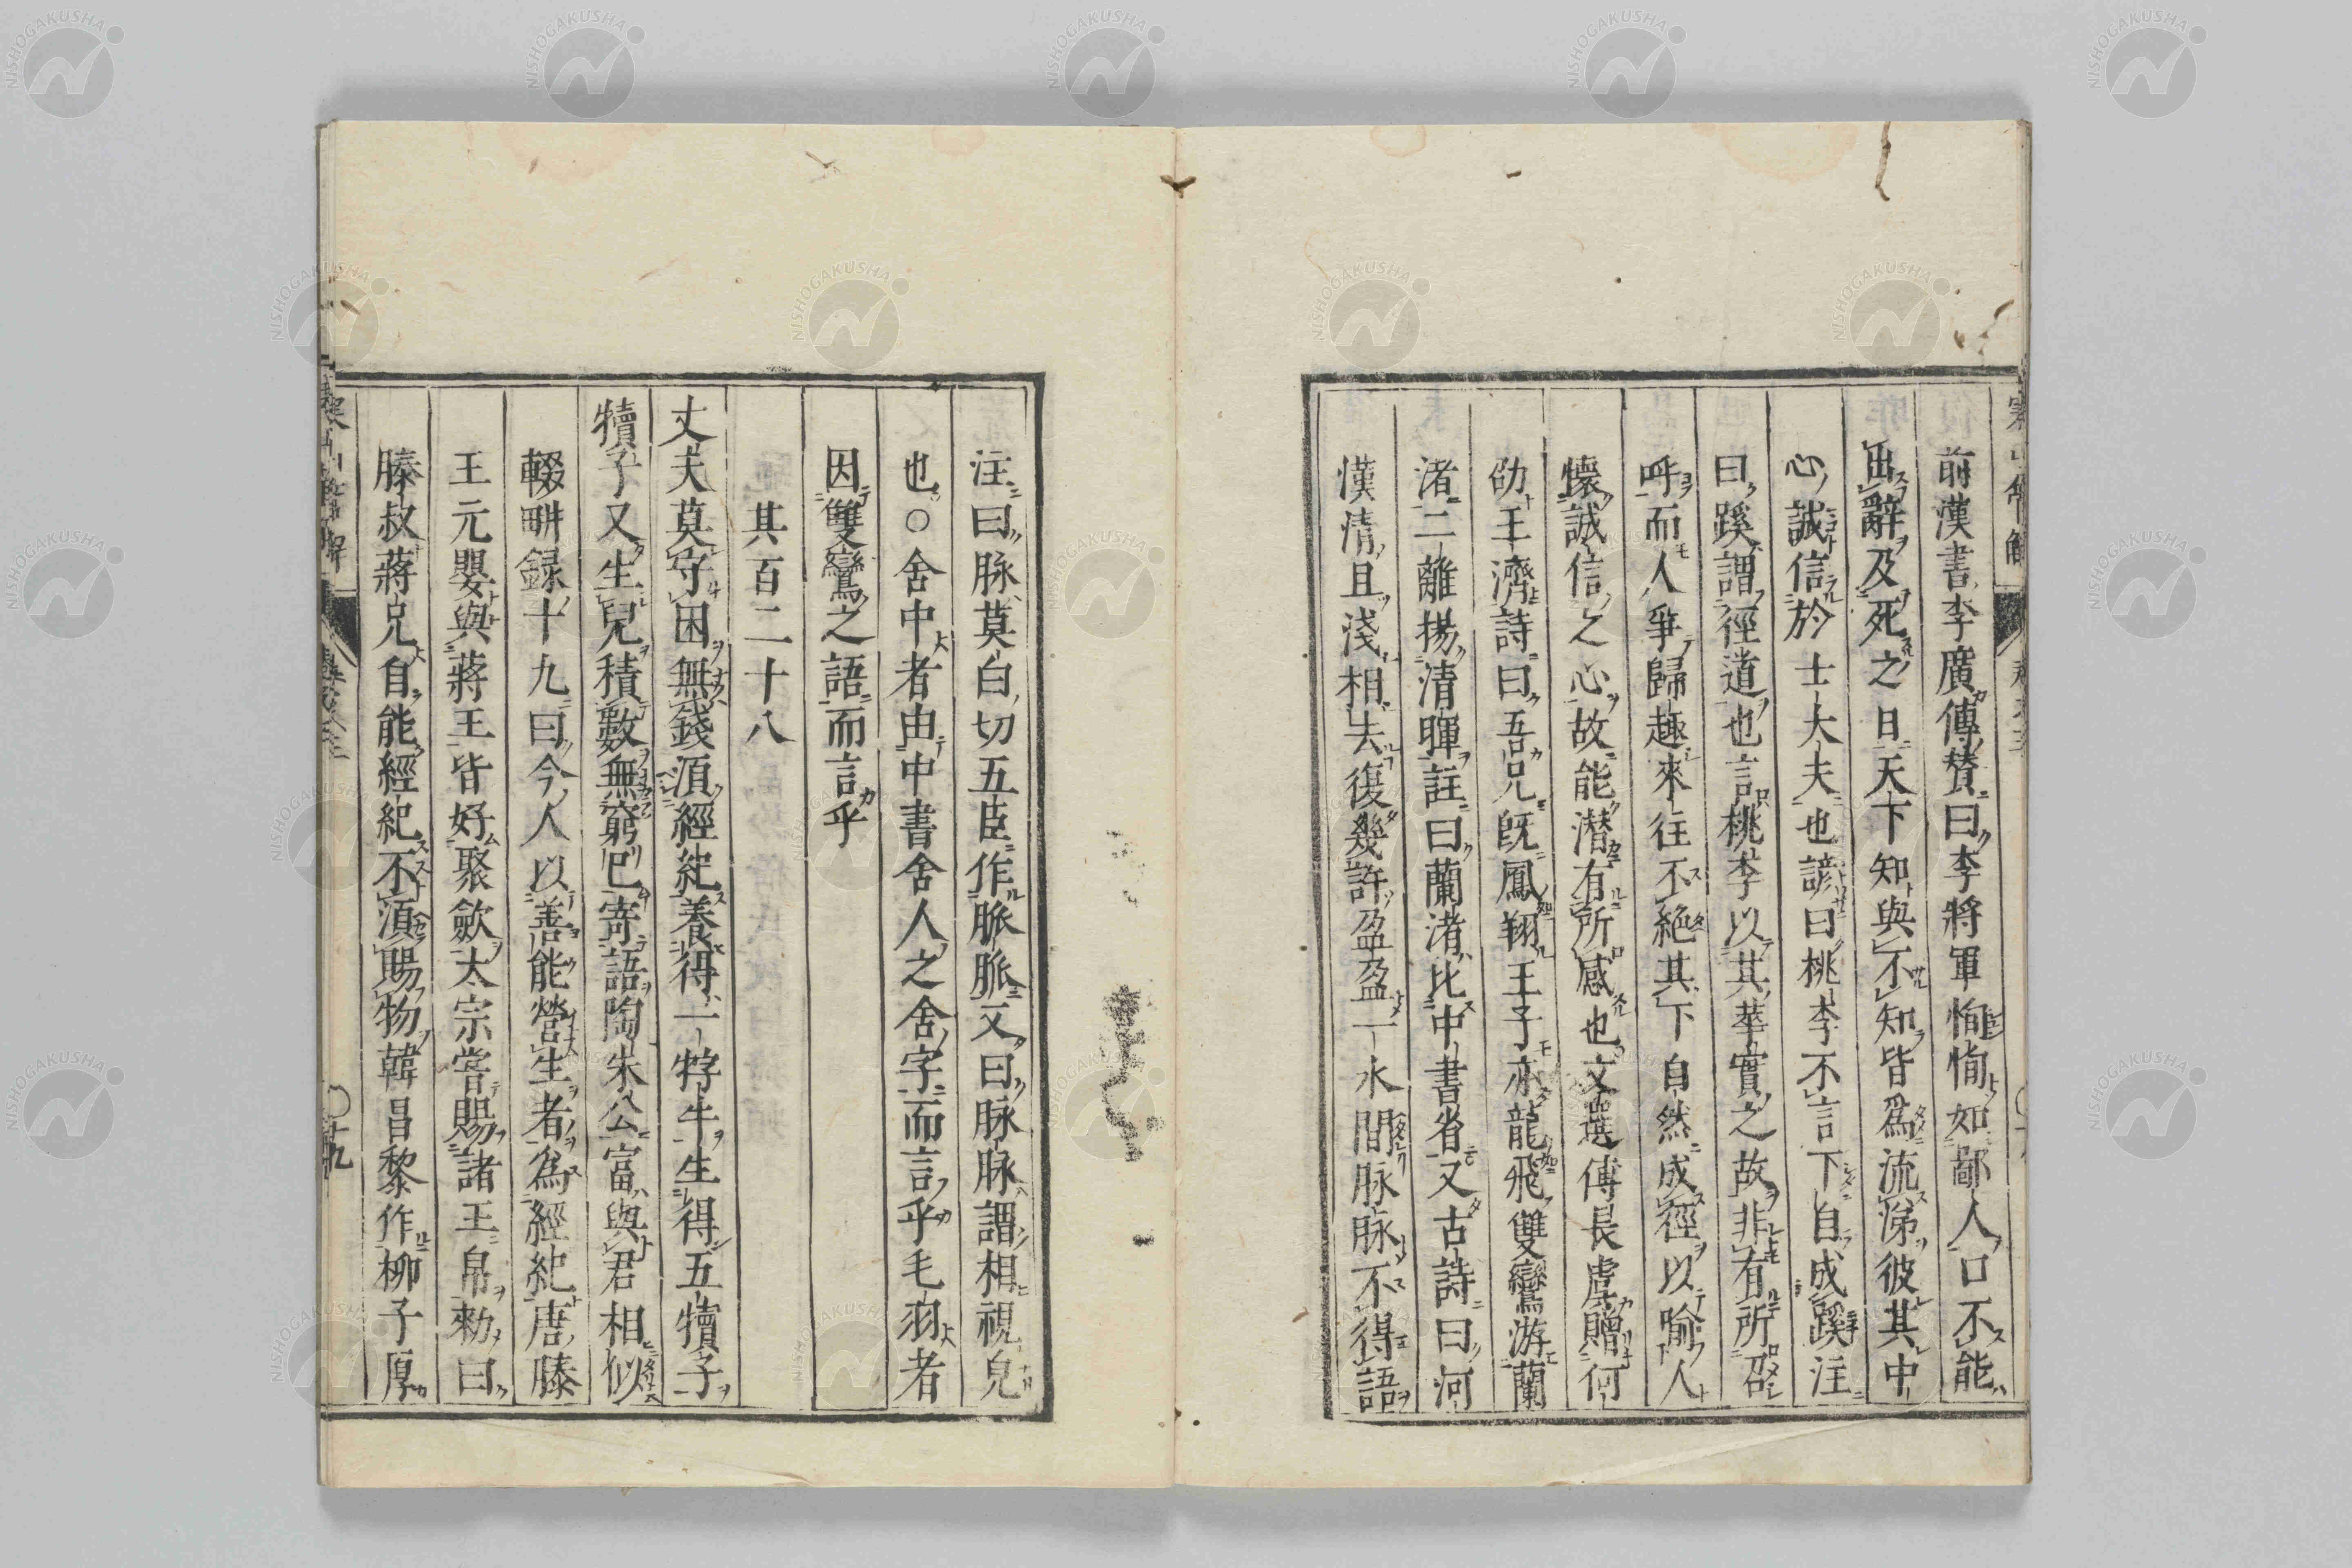 前漢書李廣傳賛曰李將軍恂恂如鄙人口不能
出辭及死之日天下知與不知皆爲流涕彼其中
心誠信於士大夫也諺曰桃李不言下自成蹊注
曰蹊謂徑道也言桃李以其華實之故非有所召
呼而人爭歸趣來往不絶其下自然成徑以喻人
懷誠信之心故能潜有所感也文選傅長虞贈何
劭王濟詩曰吾兄旣鳳翔王子亦龍飛雙鸞游蘭
渚二離揚清暉註曰蘭渚比中書省又古詩曰河
漢清且淺相去復幾許盈盈一水間脉脉不得語
注曰脉莫白切五臣作脈脈文曰脉脉謂相視皃
也○舍中者由中書舍人之舍字而言乎毛羽者
因雙鸞之語而言乎
其百二十八
丈夫莫守困無錢湏經紀養得一牸牛生得五犢子
犢子又生兒積數無窮巳寄語陶朱公富與君相似
輟畊録十九曰今人以善能營生者爲經紀唐滕
王元嬰與蔣王皆好聚歛太宗嘗賜諸王帛勑曰
滕叔蔣兄自能經紀不湏賜物韓昌黎作柳子厚
十九
NISHOGAKUSHA